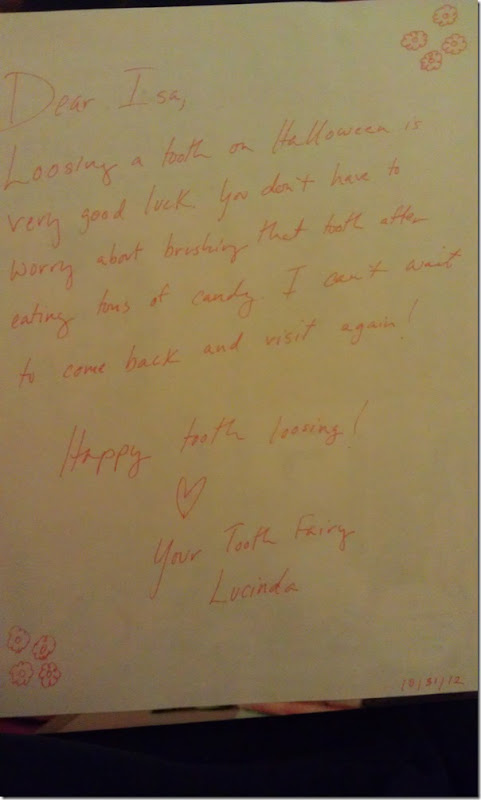 Dear Isa,
Loosing a tooth on Halloween is
very good luck. You don't have to
worry about brushing that tooth after
eating tons of candy. I can't wait
to come back and visit again!
Happy tooth loosing!
Your Tooth Fairy
Lucinda
10/31/12